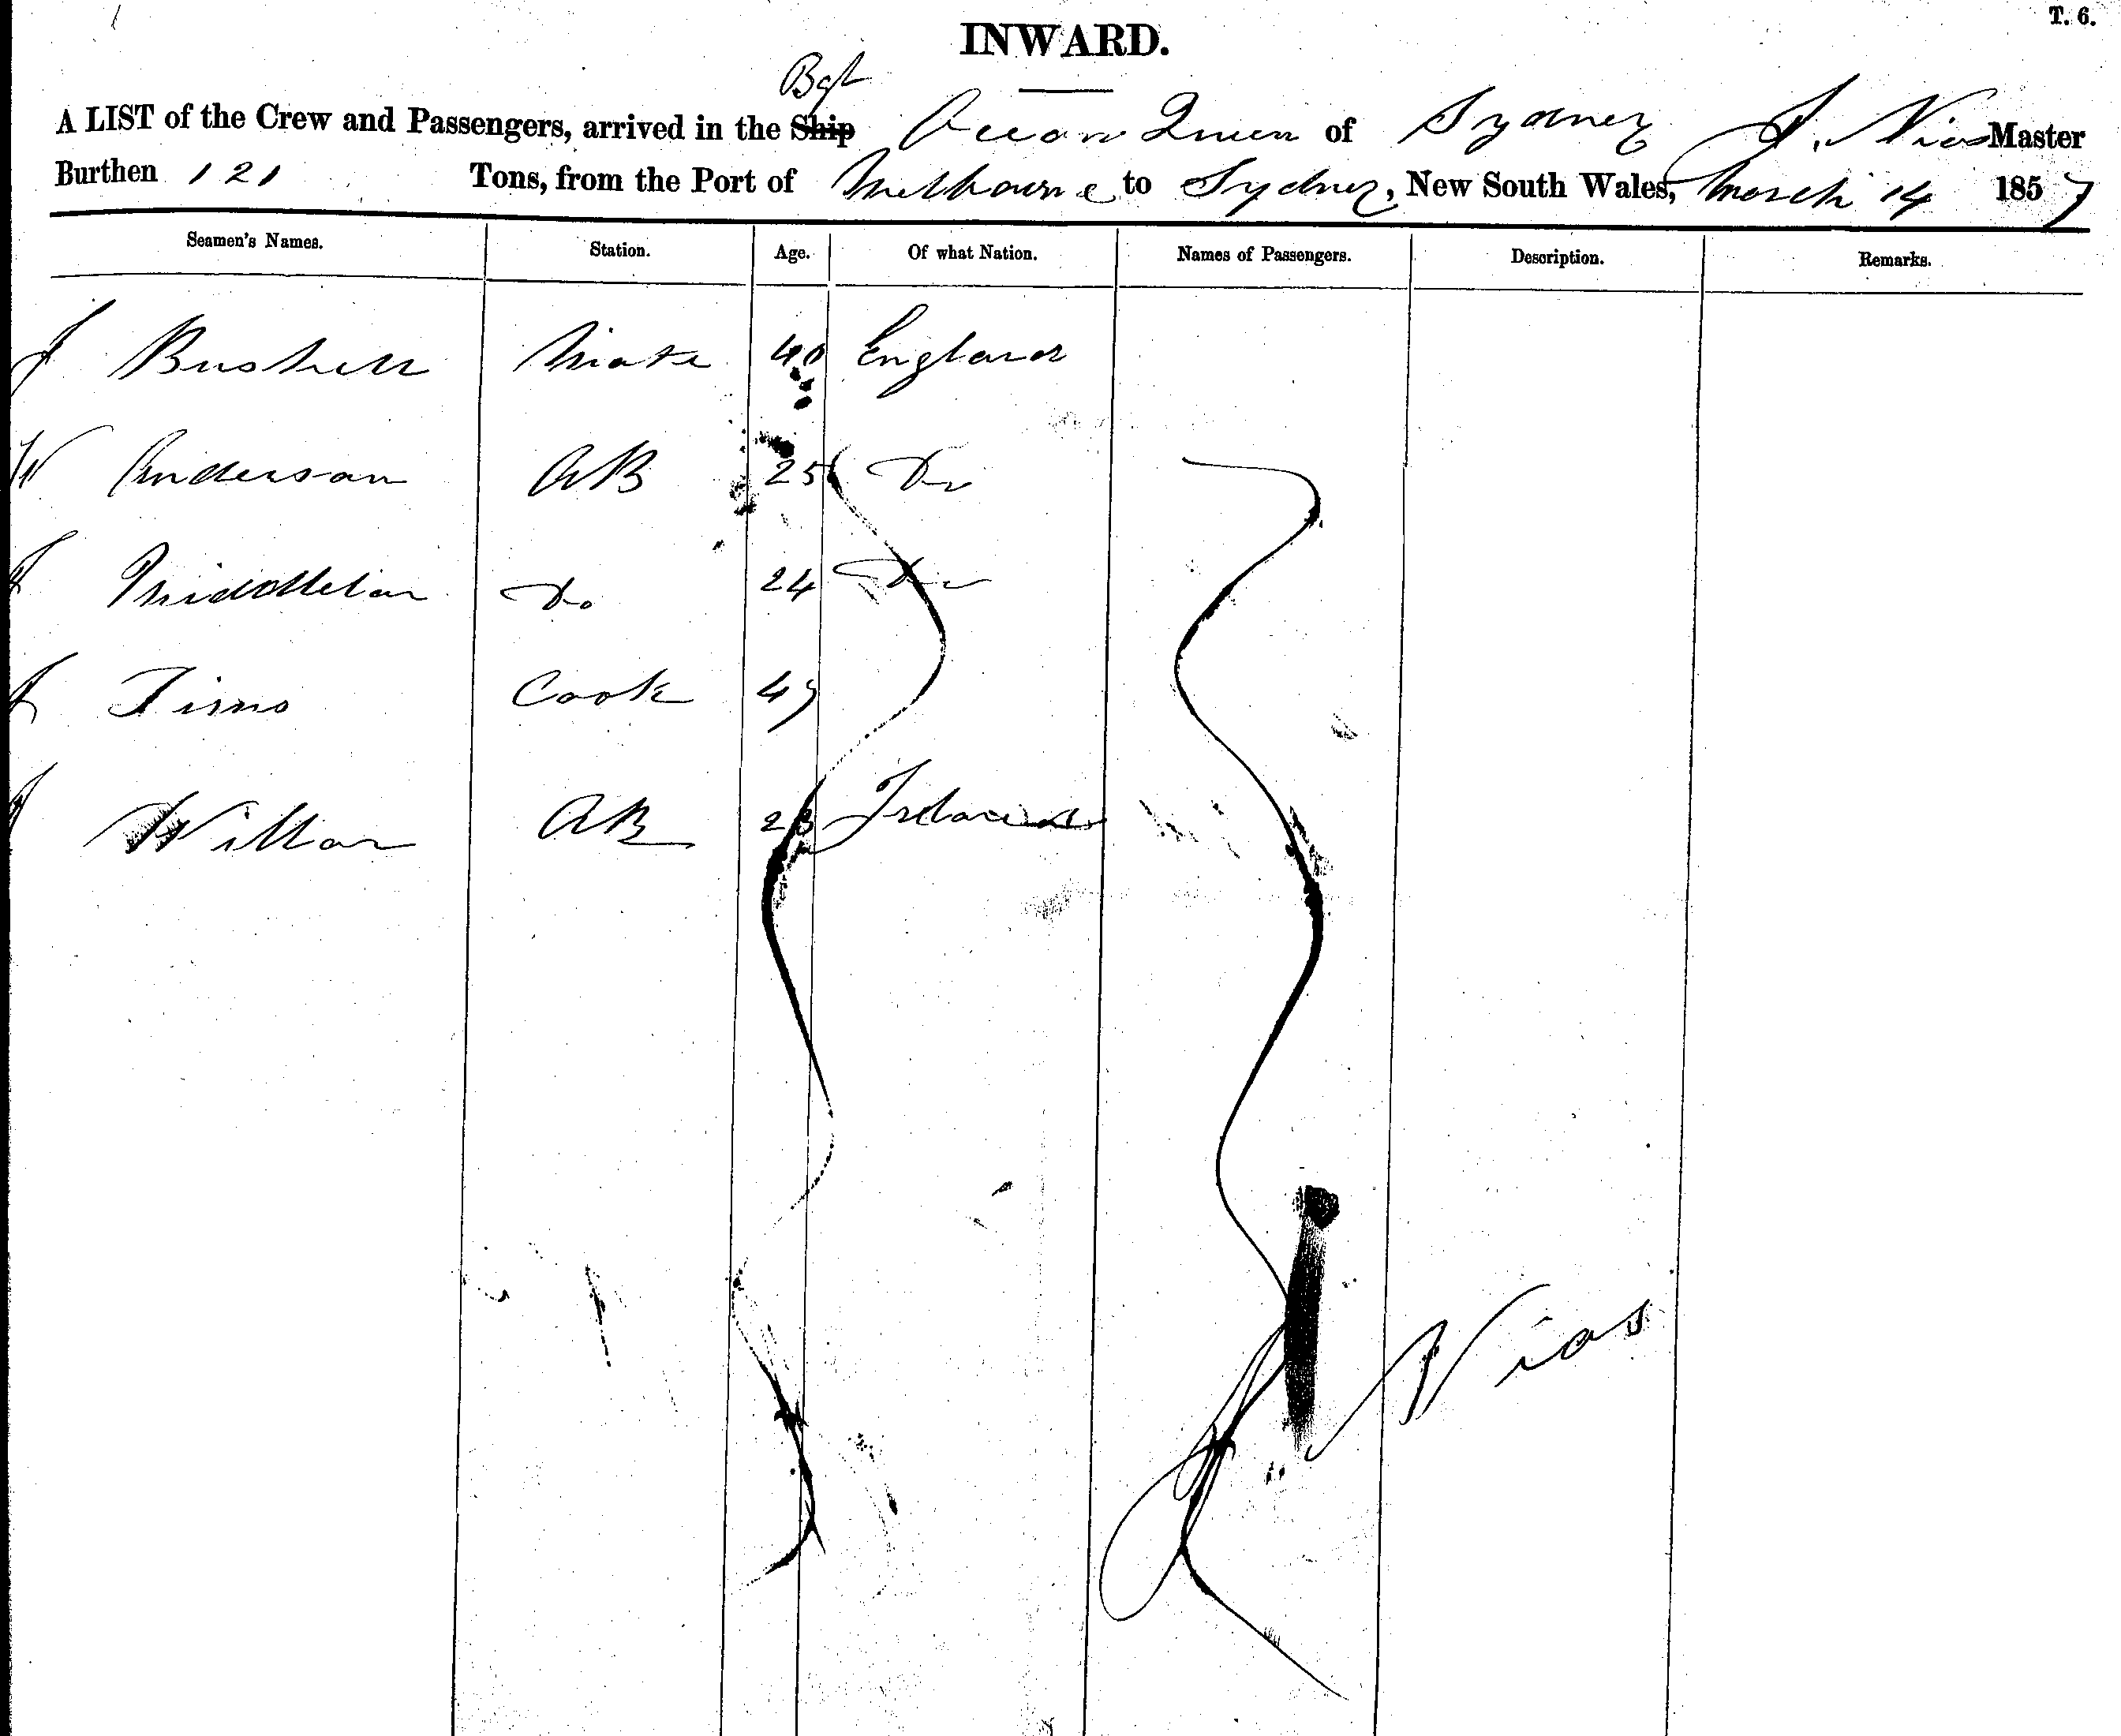 T. 6.
INWARD.
Bgt
A LIST of the Crew and Passengers, arrived in the Ship Ocean Queen of Sydney J. Nias Master
Burthen 121 Tons, from the Port of Melbourne to Sydney, New South Wales, March 14 1857
Seamen's Names. Station. Age. Of what Nation. Names of Passengers. Description. Remarks.
J Bushell Mate 40 England
W Anderson AB 25 Do
J Middleton Do 24 Do
J Cook 45
J AB 23 Ireland
J Nias